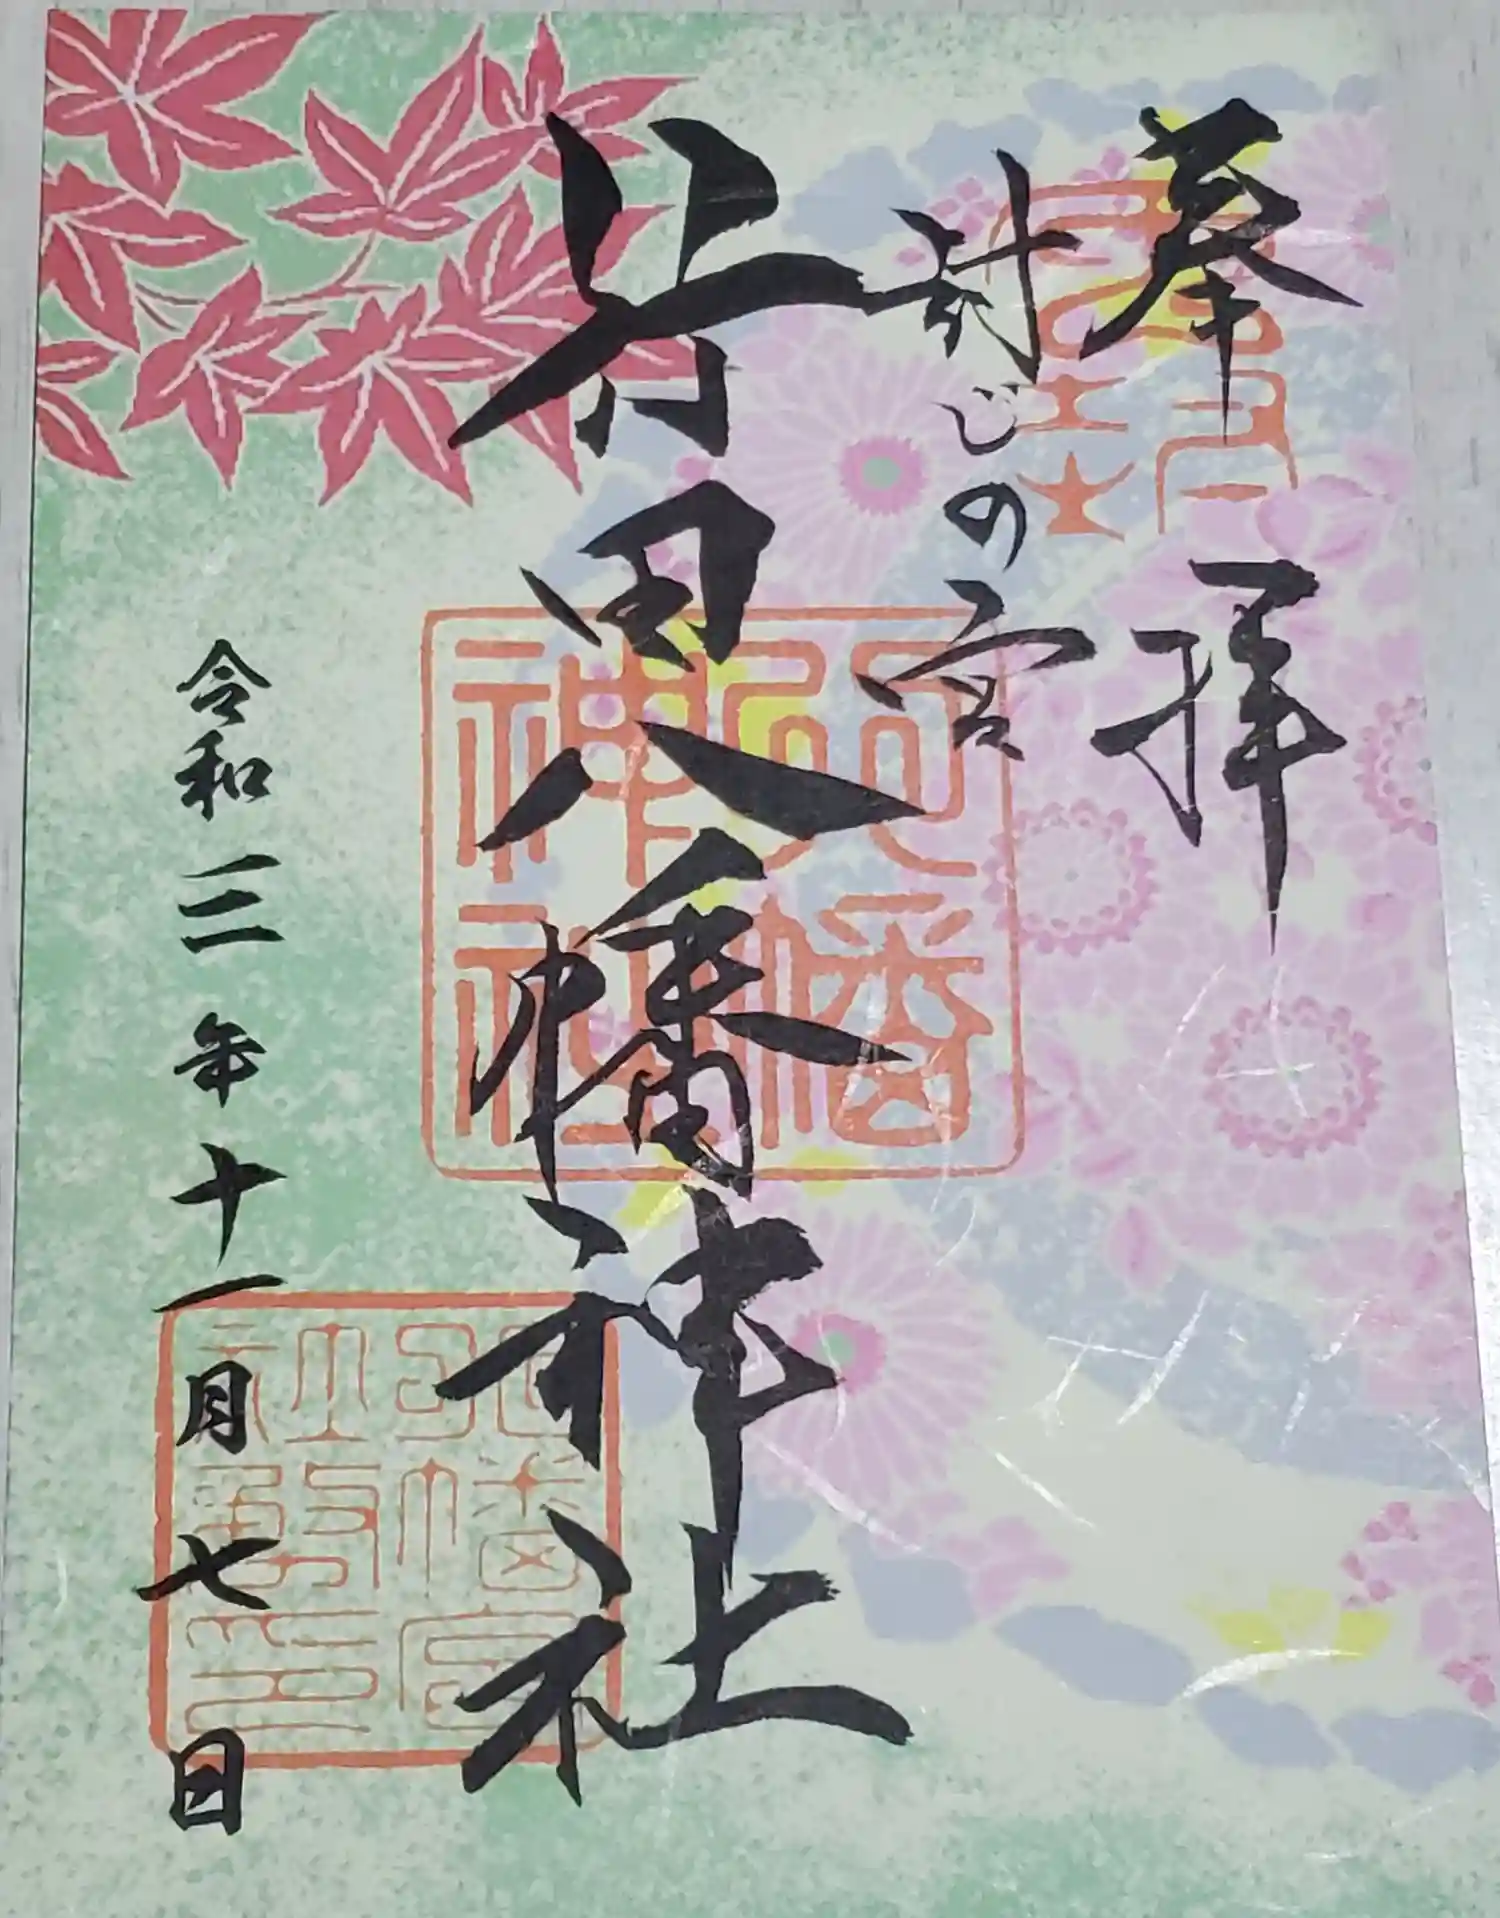 奉拝
封じの宮
行田八幡神社
八幡神社
令和三年十一月七日